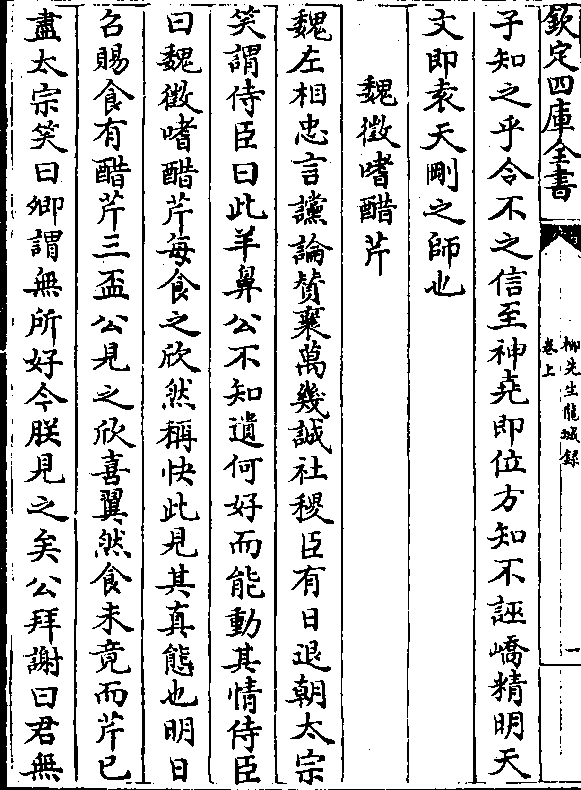 欽定四庫全書
柳先生龍城録
卷上
一
子知之乎令不之信至神堯即位方知不誣嶠精明天
文即袁天剛之師也
魏徵嗜醋芹
魏左相忠言讜論賛襄萬幾誠社稷臣有日退朝太宗
笑謂侍臣曰此羊鼻公不知遺何好而能動其情侍臣
曰魏徵嗜醋芹每食之欣然稱快此見其真態也明日
召賜食有醋芹三盃公見之欣喜翼然食未竟而芹已
盡太宗笑曰卿謂無所好今朕見之矣公拜謝曰君無